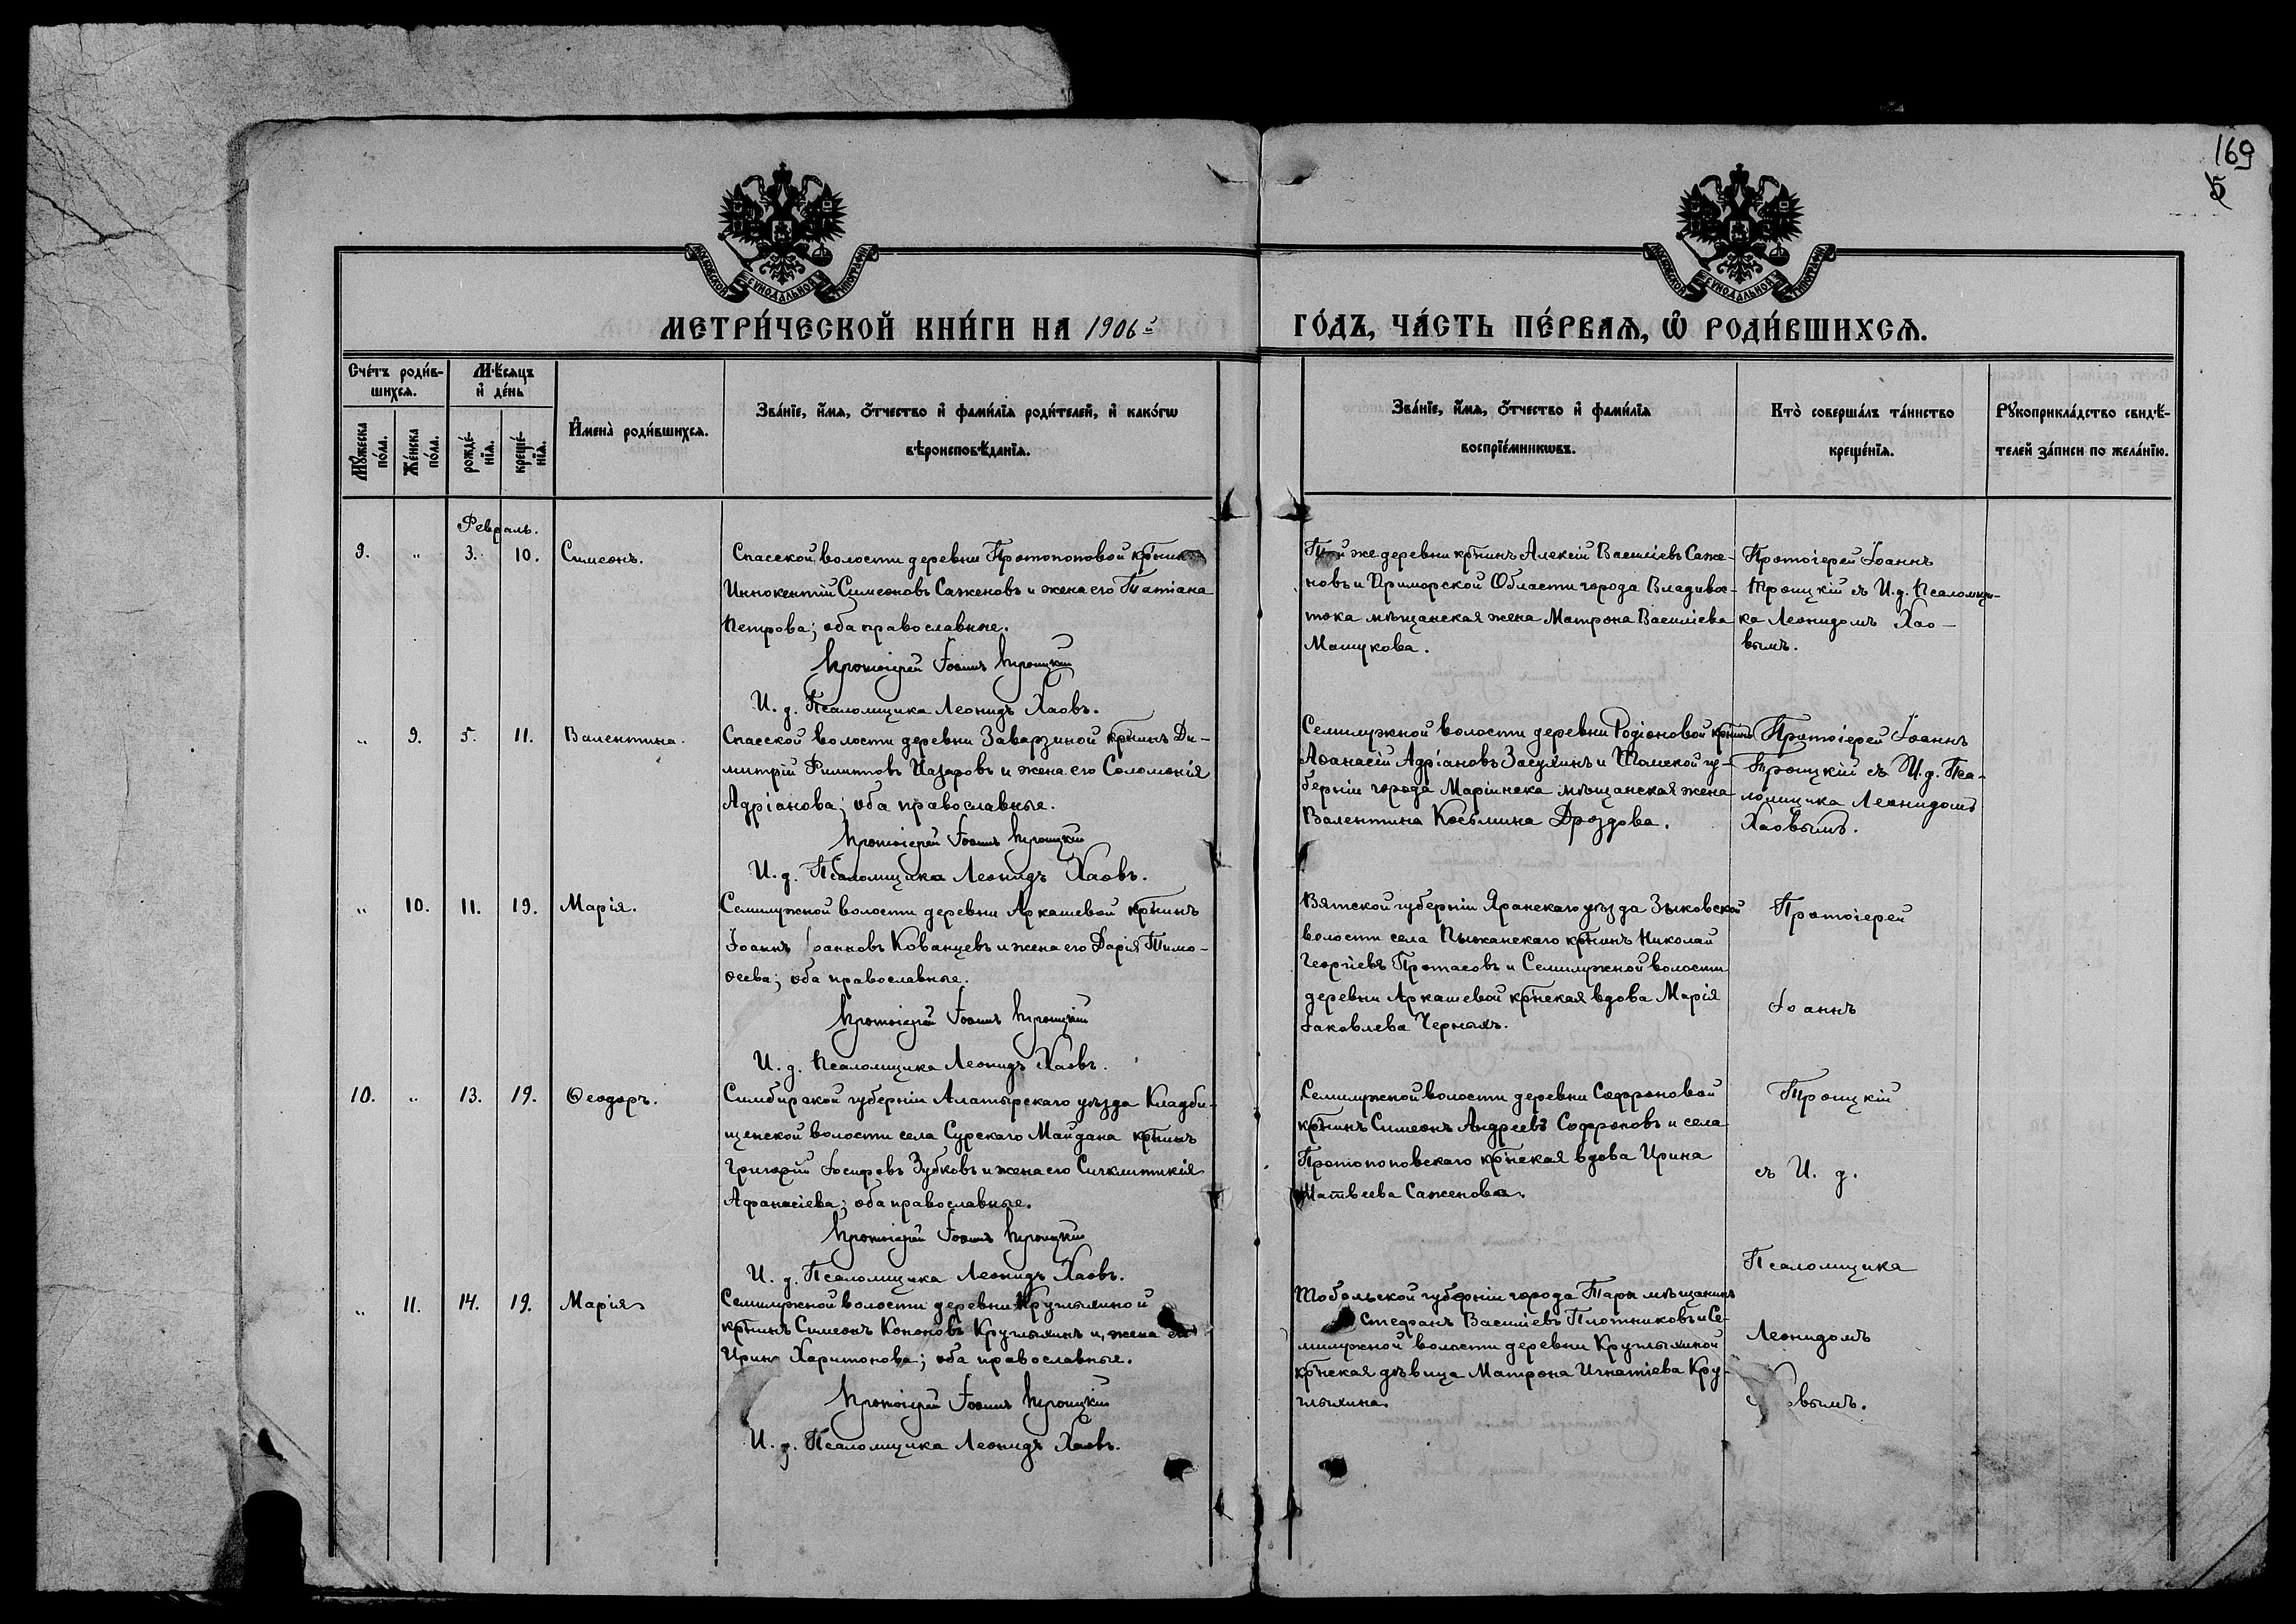 169
5
МОСКОВСКОЙ СѴНОДАЛЬНОЙ ТИПОГРАФІИ
МОСКОВСКОЙ СѴНОДАЛЬНОЙ ТИПОГРАФІИ
МЕТРИ́ЧЕСКОЙ КНИ́ГИ НА 1906й ГО́ДЪ, ЧА́СТЬ ПЕ́РВАѦ, Ѽ РОДИ́ВШИХСѦ.
Сче́тъ роди́в-
шихсѧ.
Мꙋ́жеска по́ла.
Же́нска по́ла.
Мѣ́сѧцъ
и҆ де́нь
рожде́-
нїѧ.
креще́-
нїѧ.
И҆мена̀ роди́вшихсѧ.
Зва́нїе, и҆́мѧ, ѻ҆́тчество и҆ фами́лїѧ роди́телей, и҆ како́гѡ
вѣроисповѣ́данїѧ.
Зва́нїе, и҆́мѧ, ѻ҆́тчество и҆ фами́лїѧ
воспрїе́мникѡвъ.
Кто̀ соверша́лъ та́инство
креще́нїѧ.
Рꙋкоприкла́дство свидѣ́-
телей за́писи по жела́нїю.
Февраль.
9. " 3. 10. Симеонъ.
Спасской волости деревни Протопоповой кр̃нинъ
Иннокентій Симеоновъ Саженовъ и жена его Татіана
Петрова; оба православные.
Протоіерей Іоаннъ Троицкій
И. д. Псаломщика Леонидъ Хаовъ.
Той же деревни кр̃нинъ Алексій Василіевъ Саже-
новъ и Приморской Области города Владивос-
тока мѣщанская жена Матрона Василіева
Машукова.
Протоіерей Іоаннъ
Троицкій съ И. д. Псаломщи-
ка Леонидомъ Хао-
вымъ.
" 9. 5. 11. Валентина.
Спасской волости деревни Заварзиной кр̃нинъ Ди-
митрій Филипповъ Назаровъ и жена его Соломонія
Адріанова; оба православные.
Протоіерей Іоаннъ Троицкій
И. д. Псаломщика Леонидъ Хаовъ.
Семилужной волости деревни Родіоновой кр̃нинъ
Аѳанасій Адріановъ Засухинъ и Томской гу-
берніи города Маріинска мѣщанская жена
Валентина Косьмина Дроздова.
Протоіерей Іоаннъ
Троицкій съ И. д. Пса-
ломщика Леонидомъ
Хаовымъ.
" 10. 11. 19. Марія.
Семилужной волости деревни Аркашевой кр̃нинъ
Іоаннъ Іоанновъ Кованцевъ и жена его Дарія Тимо-
ѳеева; оба православные.
Протоіерей Іоаннъ Троицкій
И. д. Псаломщика Леонидъ Хаовъ.
Вятской губерніи Яранскаго уѣзда Зыковской
волости села Пижанскаго кр̃нинъ Николай
Георгіевъ Протасовъ и Семилужной волости
деревни Аркашевой кр̃нская вдова Марія
Іаковлева Черныхъ.
Протоіерей
Іоаннъ
10. " 13. 19. Ѳеодоръ.
Симбирской губерніи Алатырскаго уѣзда Кладби-
щенской волости села Сурскаго Майдана кр̃нинъ
Григорій Іосифовъ Зубковъ и жена его Сигклитикія
Афанасіева; оба православные.
Протоіерей Іоаннъ Троицкій
И. д. Псаломщика Леонидъ Хаовъ.
Семилужной волости деревни Софроновой
кр̃нинъ Симеонъ Андреевъ Софроновъ и села
Протопоповскаго кр̃нская вдова Ирина
Матвѣева Саженова.
Троицкій
съ И. д.
Псаломщика
" 11. 14. 19. Марія
Семилужной волости деревни Круглыхиной
кр̃нинъ Симеонъ Кононовъ Круглыхинъ и жена его
Ирина Харитонова; оба православные.
Протоіерей Іоаннъ Троицкій
И. д. Псаломщика Леонидъ Хаовъ.
Тобольской губерніи города Тары мѣщанинъ
Стефанъ Василіевъ Плотниковъ и Се-
милужной волости деревни Круглыхиной
кр̃нская дѣвица Матрона Игнатіева Кру-
глыхина.
Леонидомъ
вымъ.